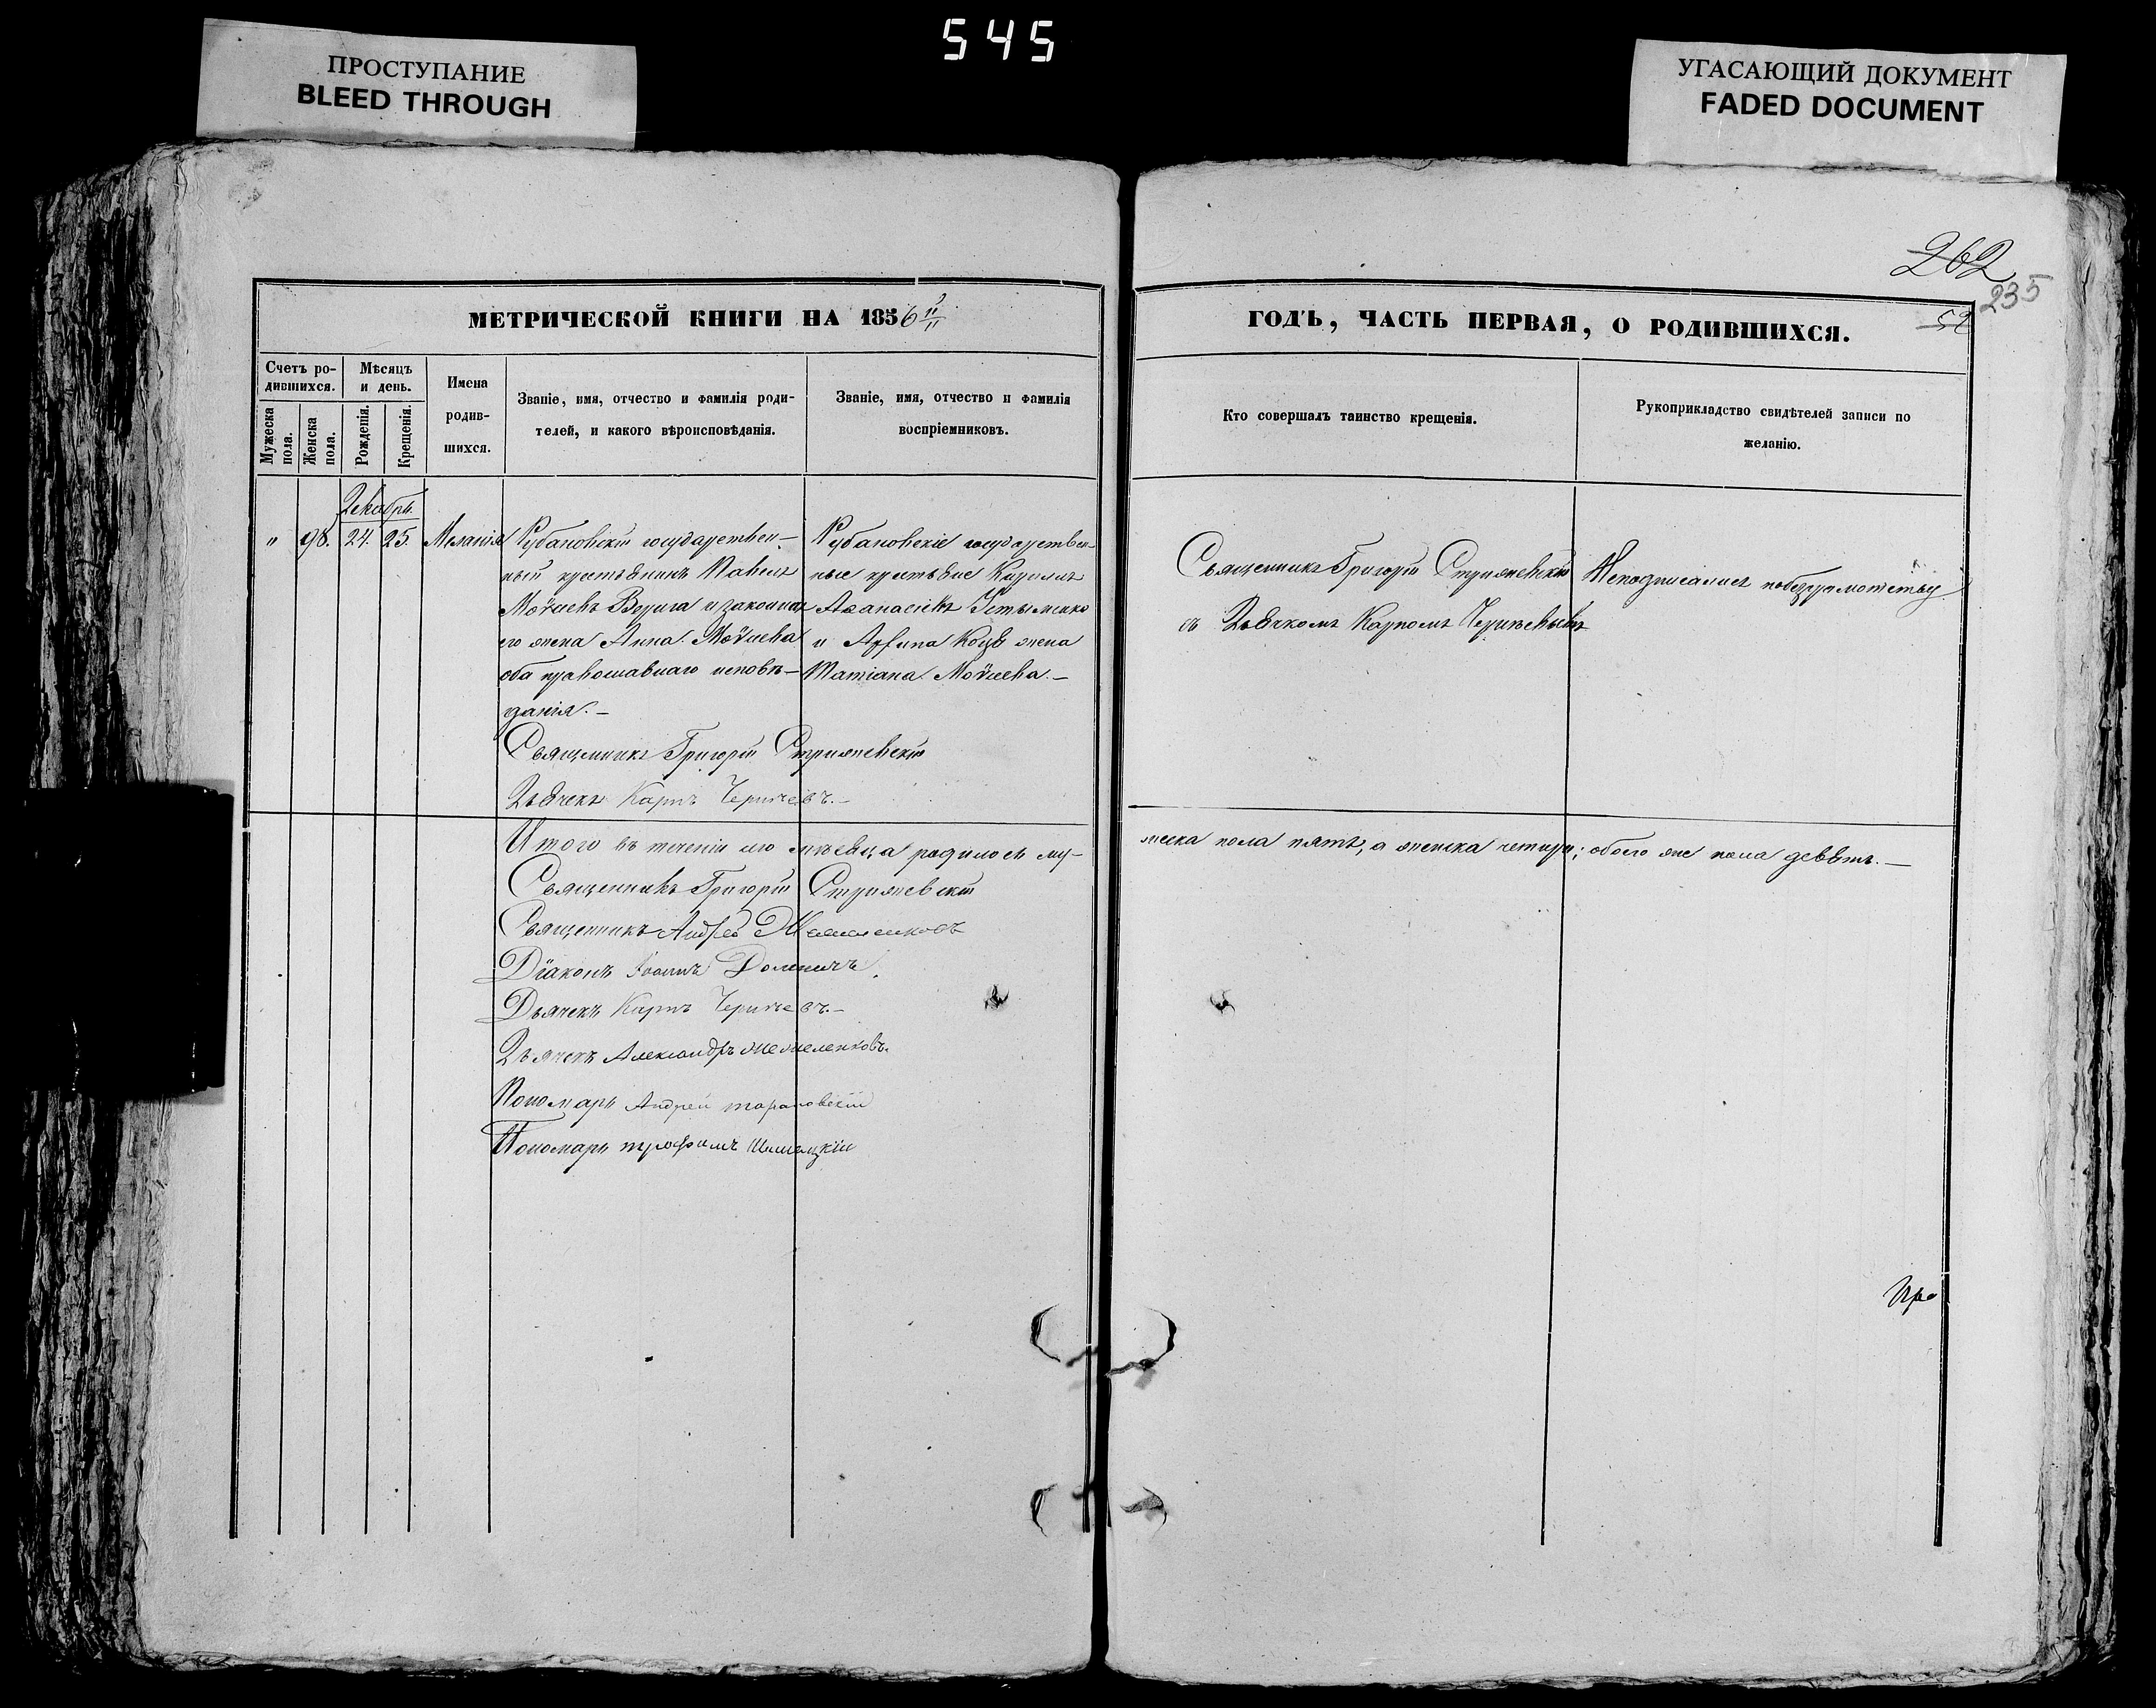 545
ПРОСТУПАНИЕ
BLEED THROUGH
УГАСАЮЩИЙ ДОКУМЕНТ
FADED DOCUMENT
262
235
52
МЕТРИЧЕСКОЙ КНИГИ НА 1856
ГОДЪ, ЧАСТЬ ПЕРВАЯ, О РОДИВШИХСЯ.
Счетъ ро-
дившихся.
Мужеска
пола.
Женска
пола.
Мѣсяцъ
и день.
Рожденія.
Крещенія.
Имена
родив-
шихся.
Званіе, имя, отчество и фамилія роди-
телей, и какого вѣроисповѣданія.
Званіе, имя, отчество и фамилія
воспріемниковъ.
Кто совершалъ таинство крещенія.
Рукоприкладство свидѣтелей записи по
желанію.
Декабрь.
" 98. 24. 25. Меланія
Рубановскій государствен-
ный крестьянинъ Павелъ
Моѵсіевъ и законная
его жена Анна Моѵсіева
оба православнаго исповѣ-
данія.-
Священникъ Григорій Стрижевскій
Дьячекъ Карпъ
Рубановскіе государствен-
ные крестьяне Кириллъ
Аѳанасіевъ Устименко
и жена
Татіана Моѵсіева.-
Священникъ Григорій Стрижевскій
съ Дьячкомъ Карпомъ
Неподписались побезграмотству
Итого въ теченіи сего мѣсяца родилось му-
жеска пола пять, а женска четыри; обоего же пола девять.-
Священникъ Григорій Стрижевскій
Священникъ Андрей
Діаконъ Іоаннъ
Дьячекъ Карпъ
Дьячекъ Александръ
Пономарь Андрей тарановскій
Пономарь трофимъ